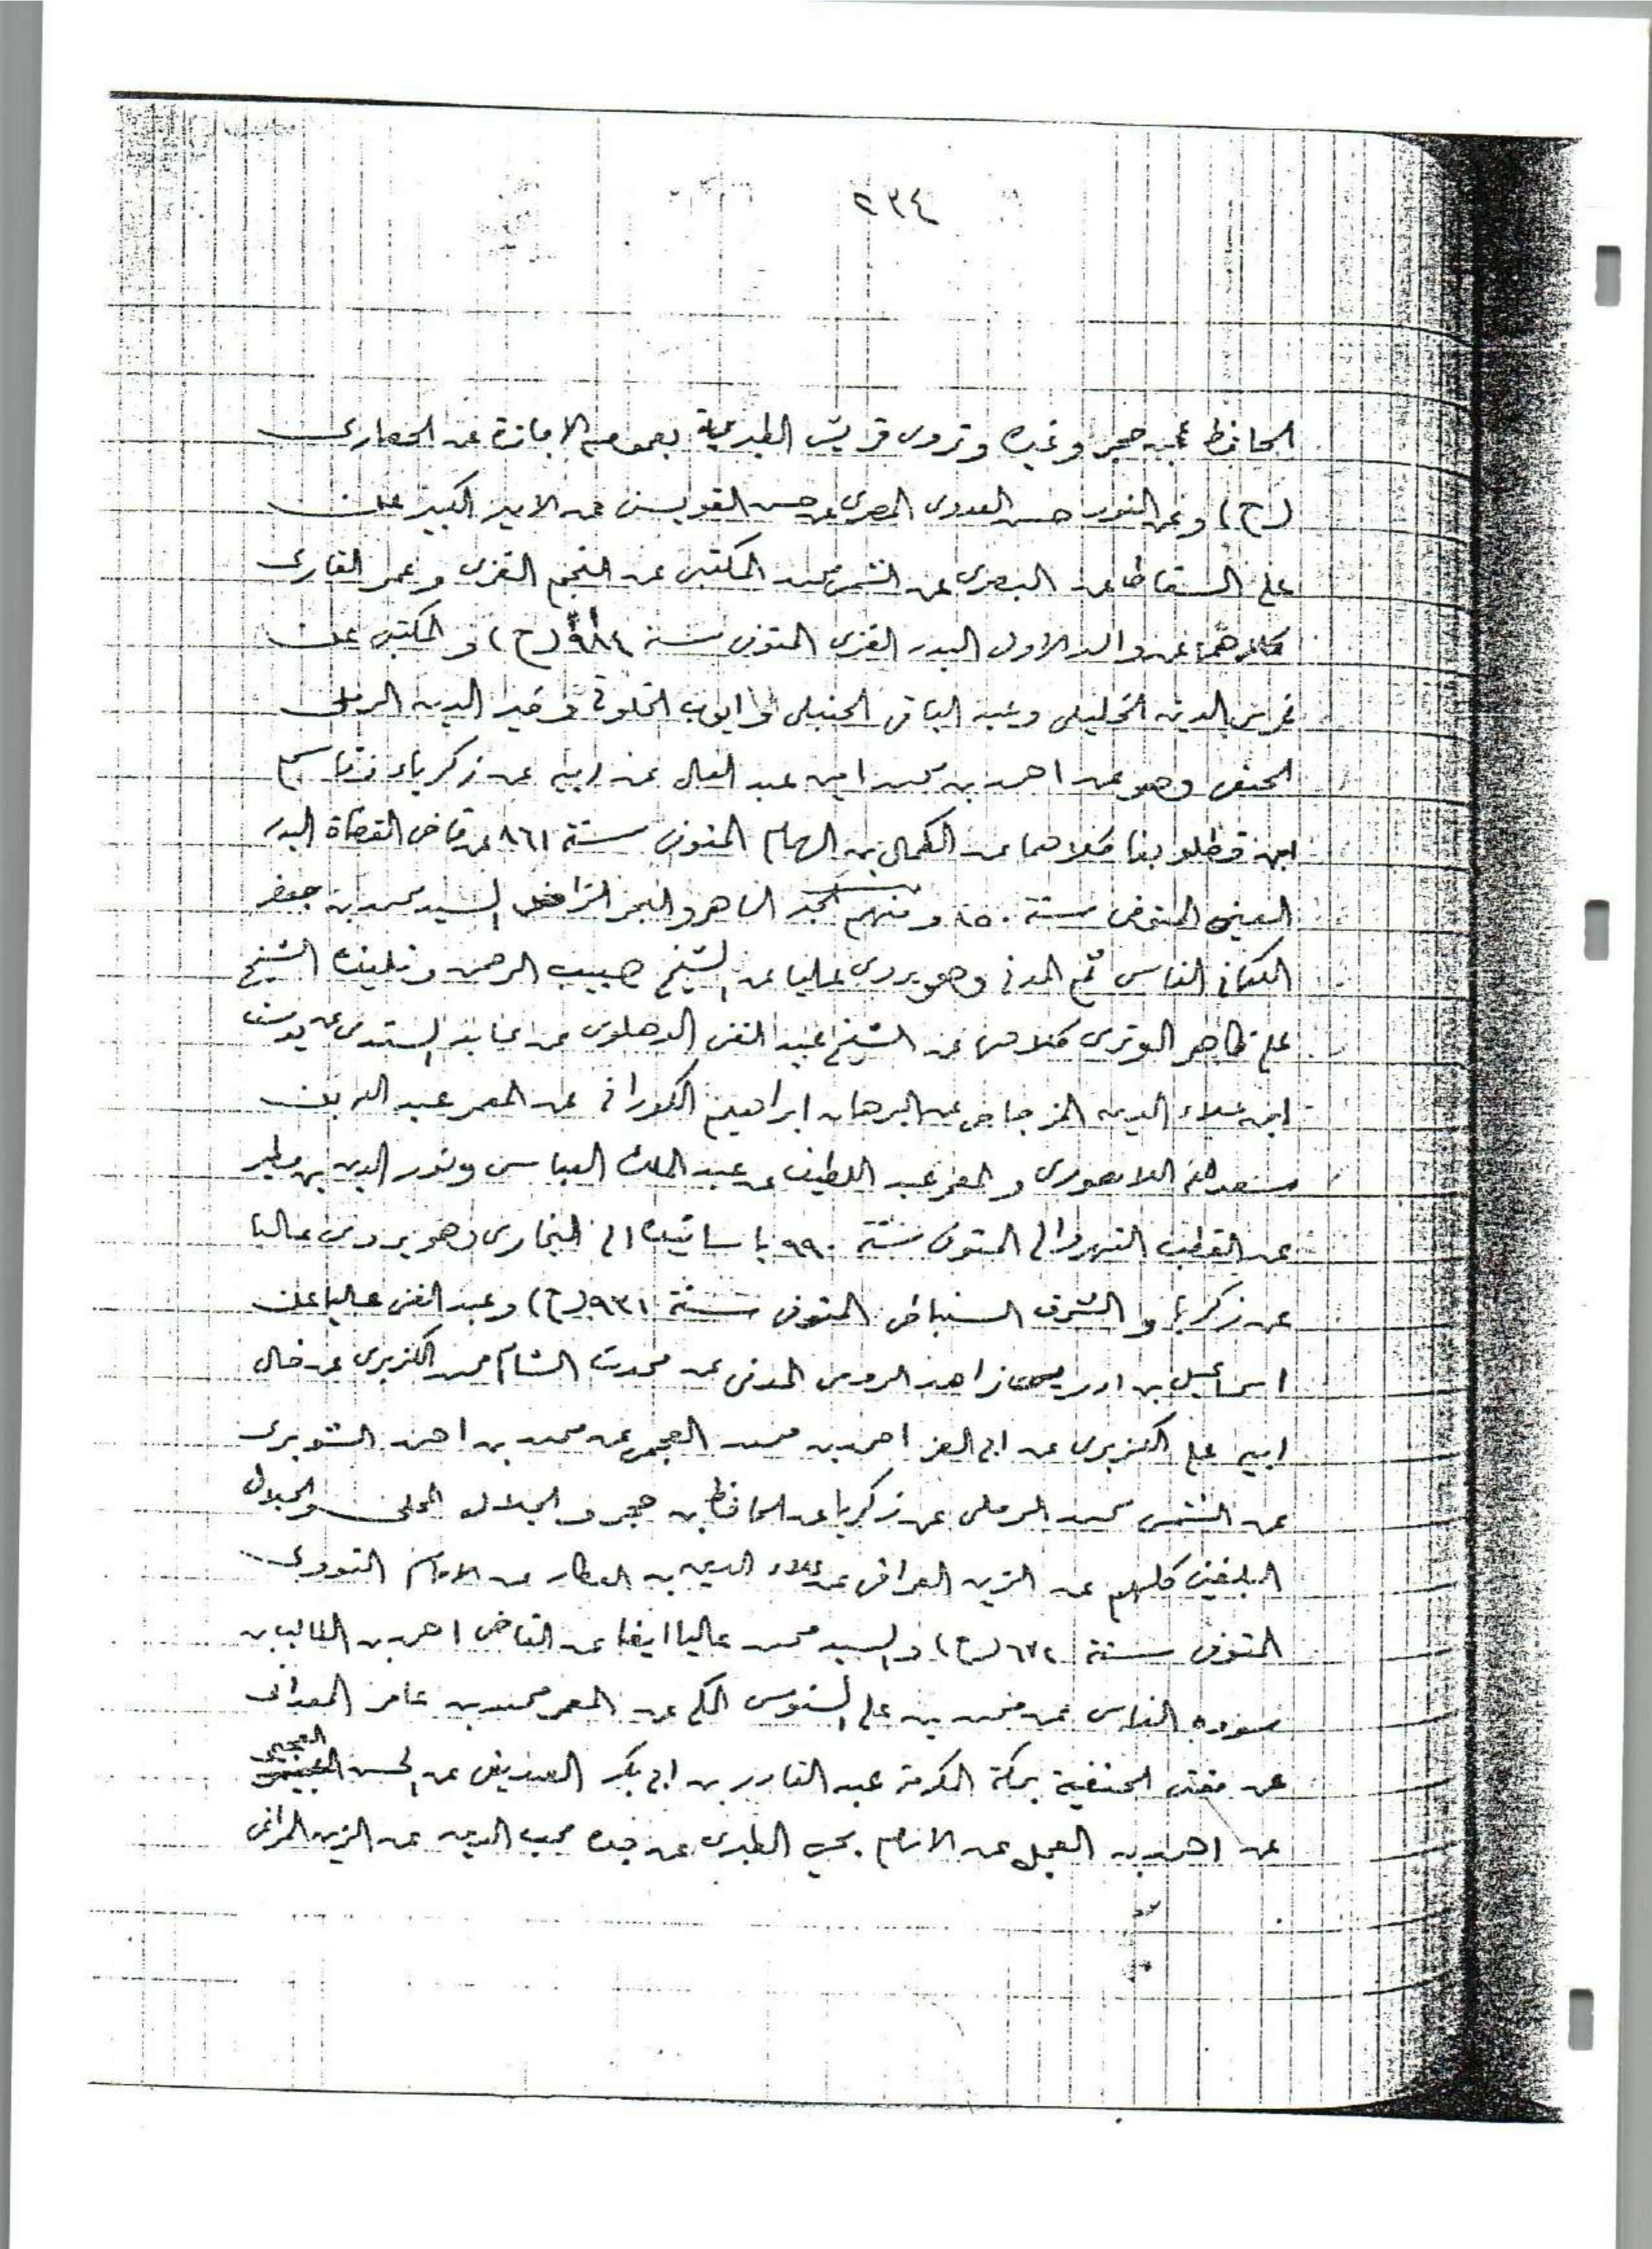 ٢٣٤
الحافظ ابن حجر وغيره وتروى قريش الطبرية بعموم الاجازة عن الحصارى
(ح) وعن النور حسن العدوى المصرى عن حسن القويسنى عن الامير الكبير عن
على السقاط عن البصرى عن الشمس محمد المكتبى عن النجم الغزى وعمر القارى
كلاهما عن والد الاول البدر الغزى المتوفى سنة ٩٨٤ (ح) والمكتبى عن
غرس الدين الخليلى وعبد الباقى الحنبلى وايوب الخلوتى وخير الدين الرملى
الحنفى وهو عن احمد بن محمد امين عبد العال عن ابيه عن زكرياء وقاسم
ابن قطلوبغا كلاهما عن الكمال بن الهمام المتوفى سنة ٨٦١ عن قاضى القضاة البدر
العينى المتوفى سنة ٨٥٠ ومنهم الماهر والبحر الزاخر السيد محمد بن جعفر
الكتانى الفاسى ثم المدنى وهو يروى عاليا عن الشيخ حبيب الرحمن وتلميذه الشيخ
على ظاهر الوترى كلاهما عن الشيخ عبد الغنى الدهلوى عن عابد السندى عن يوسف
ابن علاء الدين المزجاجى عن البرهان ابراهيم الكورانى عن المعمر عبد الله بن
سعد الله اللاهورى والمعمر عبد اللطيف عن عبد الملك العباسى ونور الدين بن مطير
عن القطب النهروالى المتوفى سنة ٩٩٠ باسانيده الى البخارى وهو يروى عاليا
عن زكريا والشرف السنباطى المتوفى سنة ٩٣١ (ح) وعبد الغنى عاليا عن
اسماعيل بن ادريس زاهد الرومى المدنى عن محدث الشام محمد الكزبرى عن خال
ابيه على الكزبرى عن ابى العز احمد بن محمد العجمى عن محمد بن احمد الشوبرى
عن الشمس محمد الرملى عن زكريا عن الحافظ بن حجر والجلال المحلى والجلال
البلقينى كلهم عن الزين العراقى عن علاء الدين بن العطار عن الامام النووى
المتوفى سنة ٦٧٦ (ح) والسيد محمد عاليا ايضا عن القاضى احمد بن الطالب بن
سوده الفاسى عن محمد بن على السنوسى المكى عن المعمر محمد بن عامر المعدانى
عن مفتى الحنفية بمكة المكرمة عبد القادر بن ابى بكر الصديقى عن الحسن العجيمى
عن احمد بن العجل عن الامام يحيى الطبرى عن جده محب الدين عن الزين المراغى